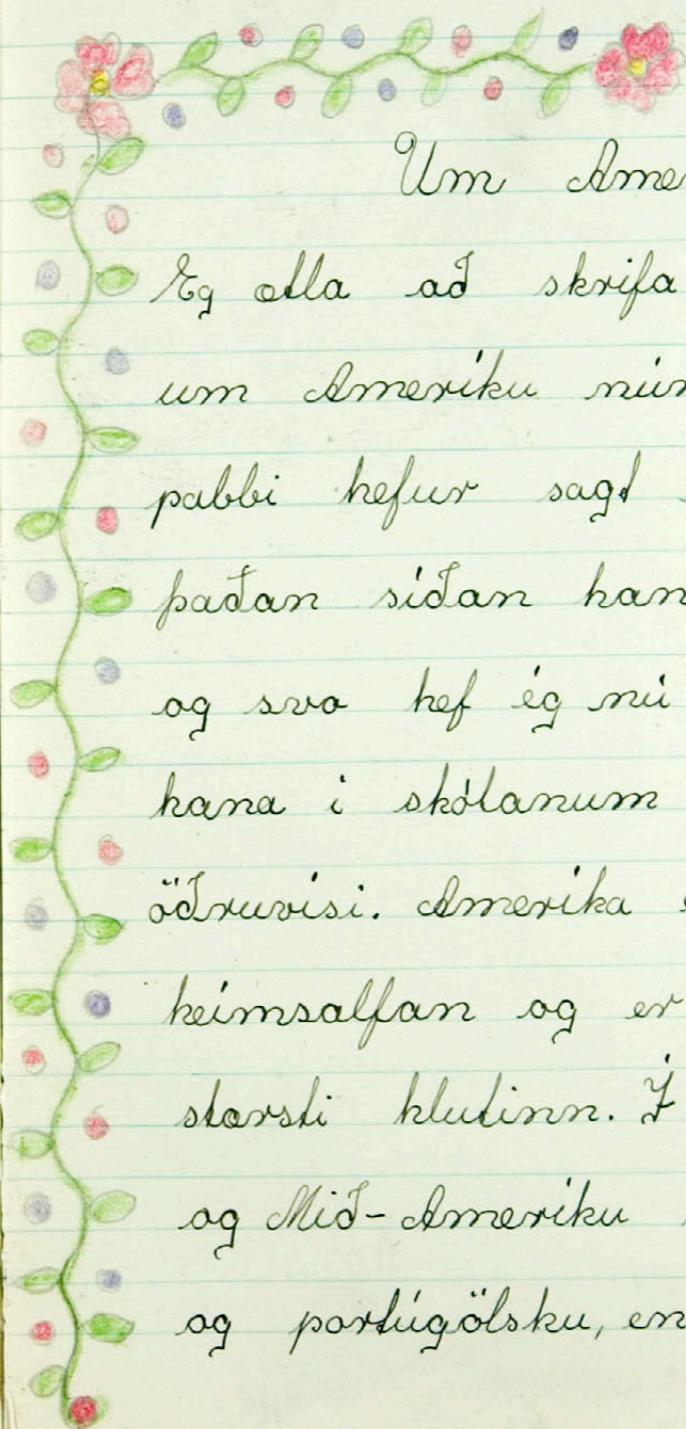 Um Ame
Eg ætla að skrifa
um Ameríku nún
pabbi hefur sagt
þaðan síðan han
og svo hef ég nú
hana í skólanum
öðruvísi. Ameríka
heimsalfan og er
stærsti hlutinn. Í
og Mið-Ameríku
og portúgölsku, en